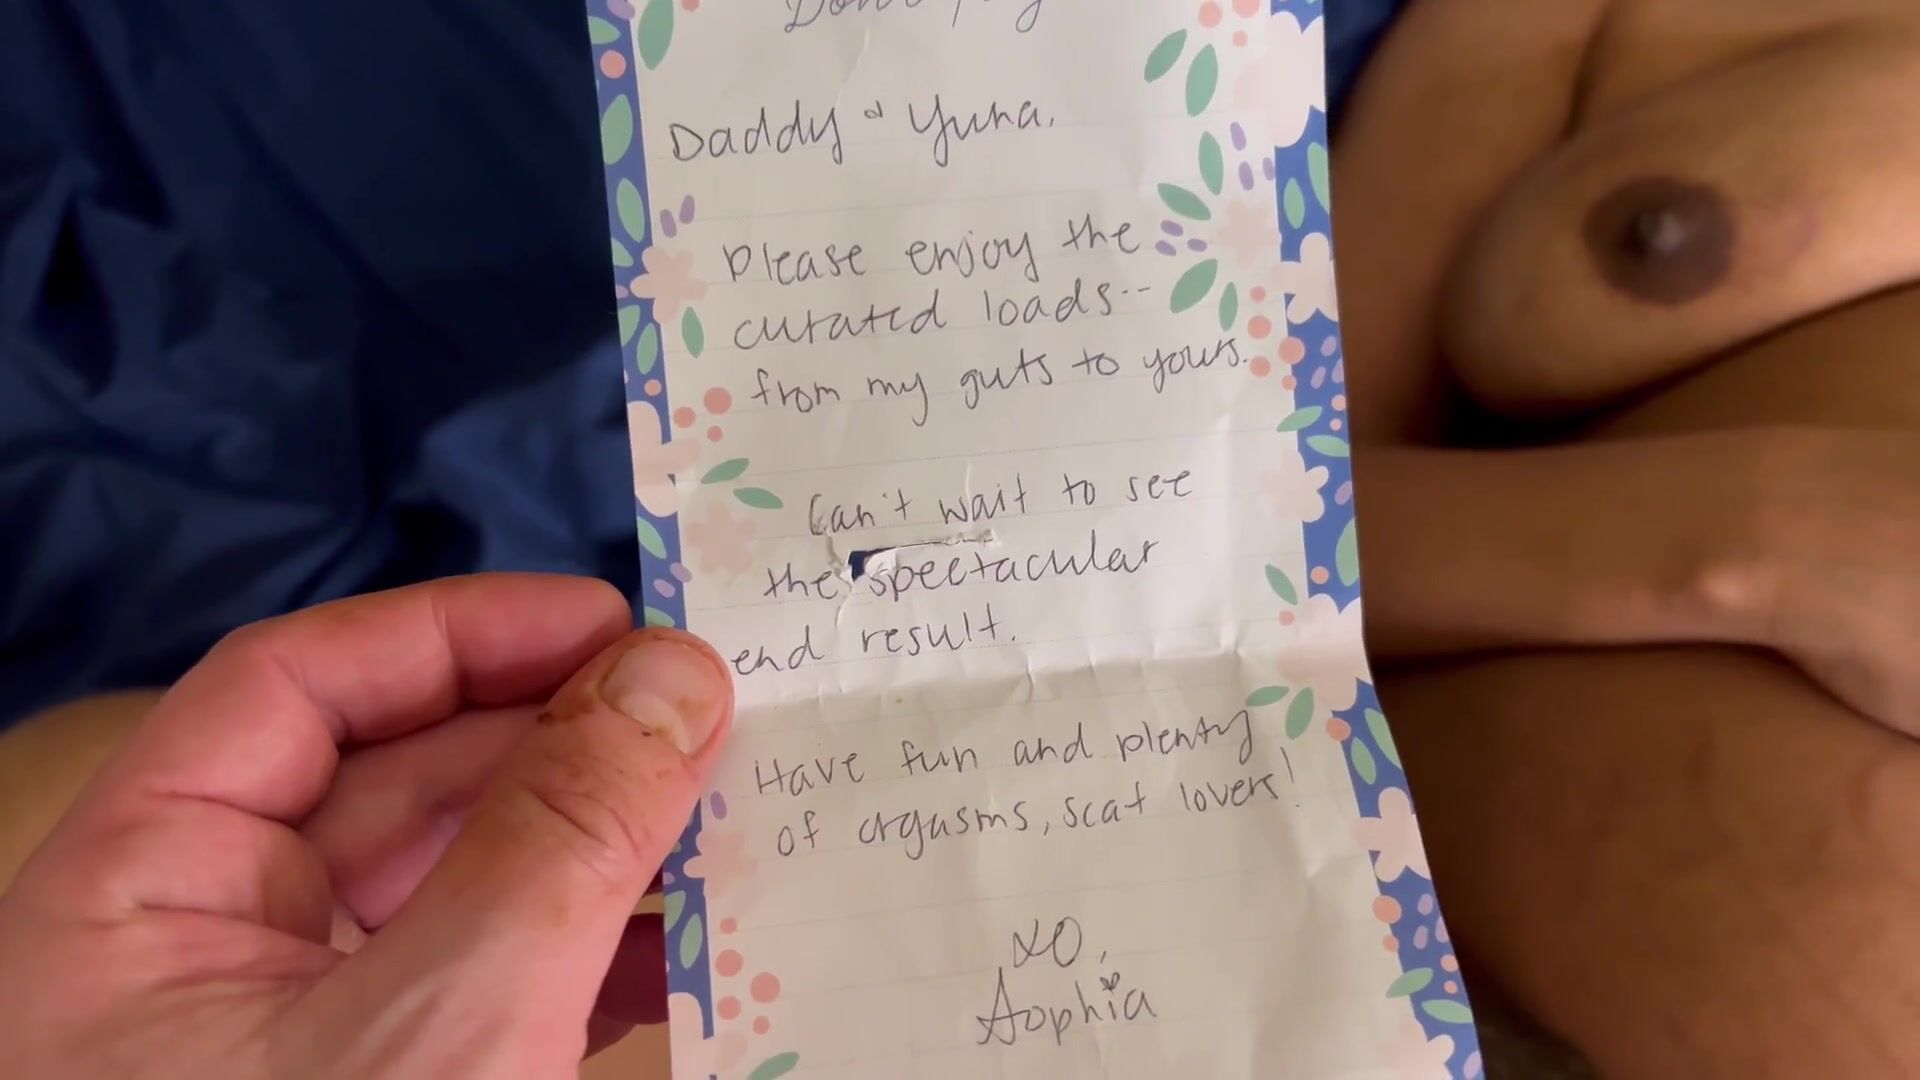 Daddy & Yuna,
Please enjoy the
curated loads--
from my guts to yours.
Can't wait to see
the spectacular
end result.
Have fun and plenty
of orgasms, scat lovers!
XO,
Sophia